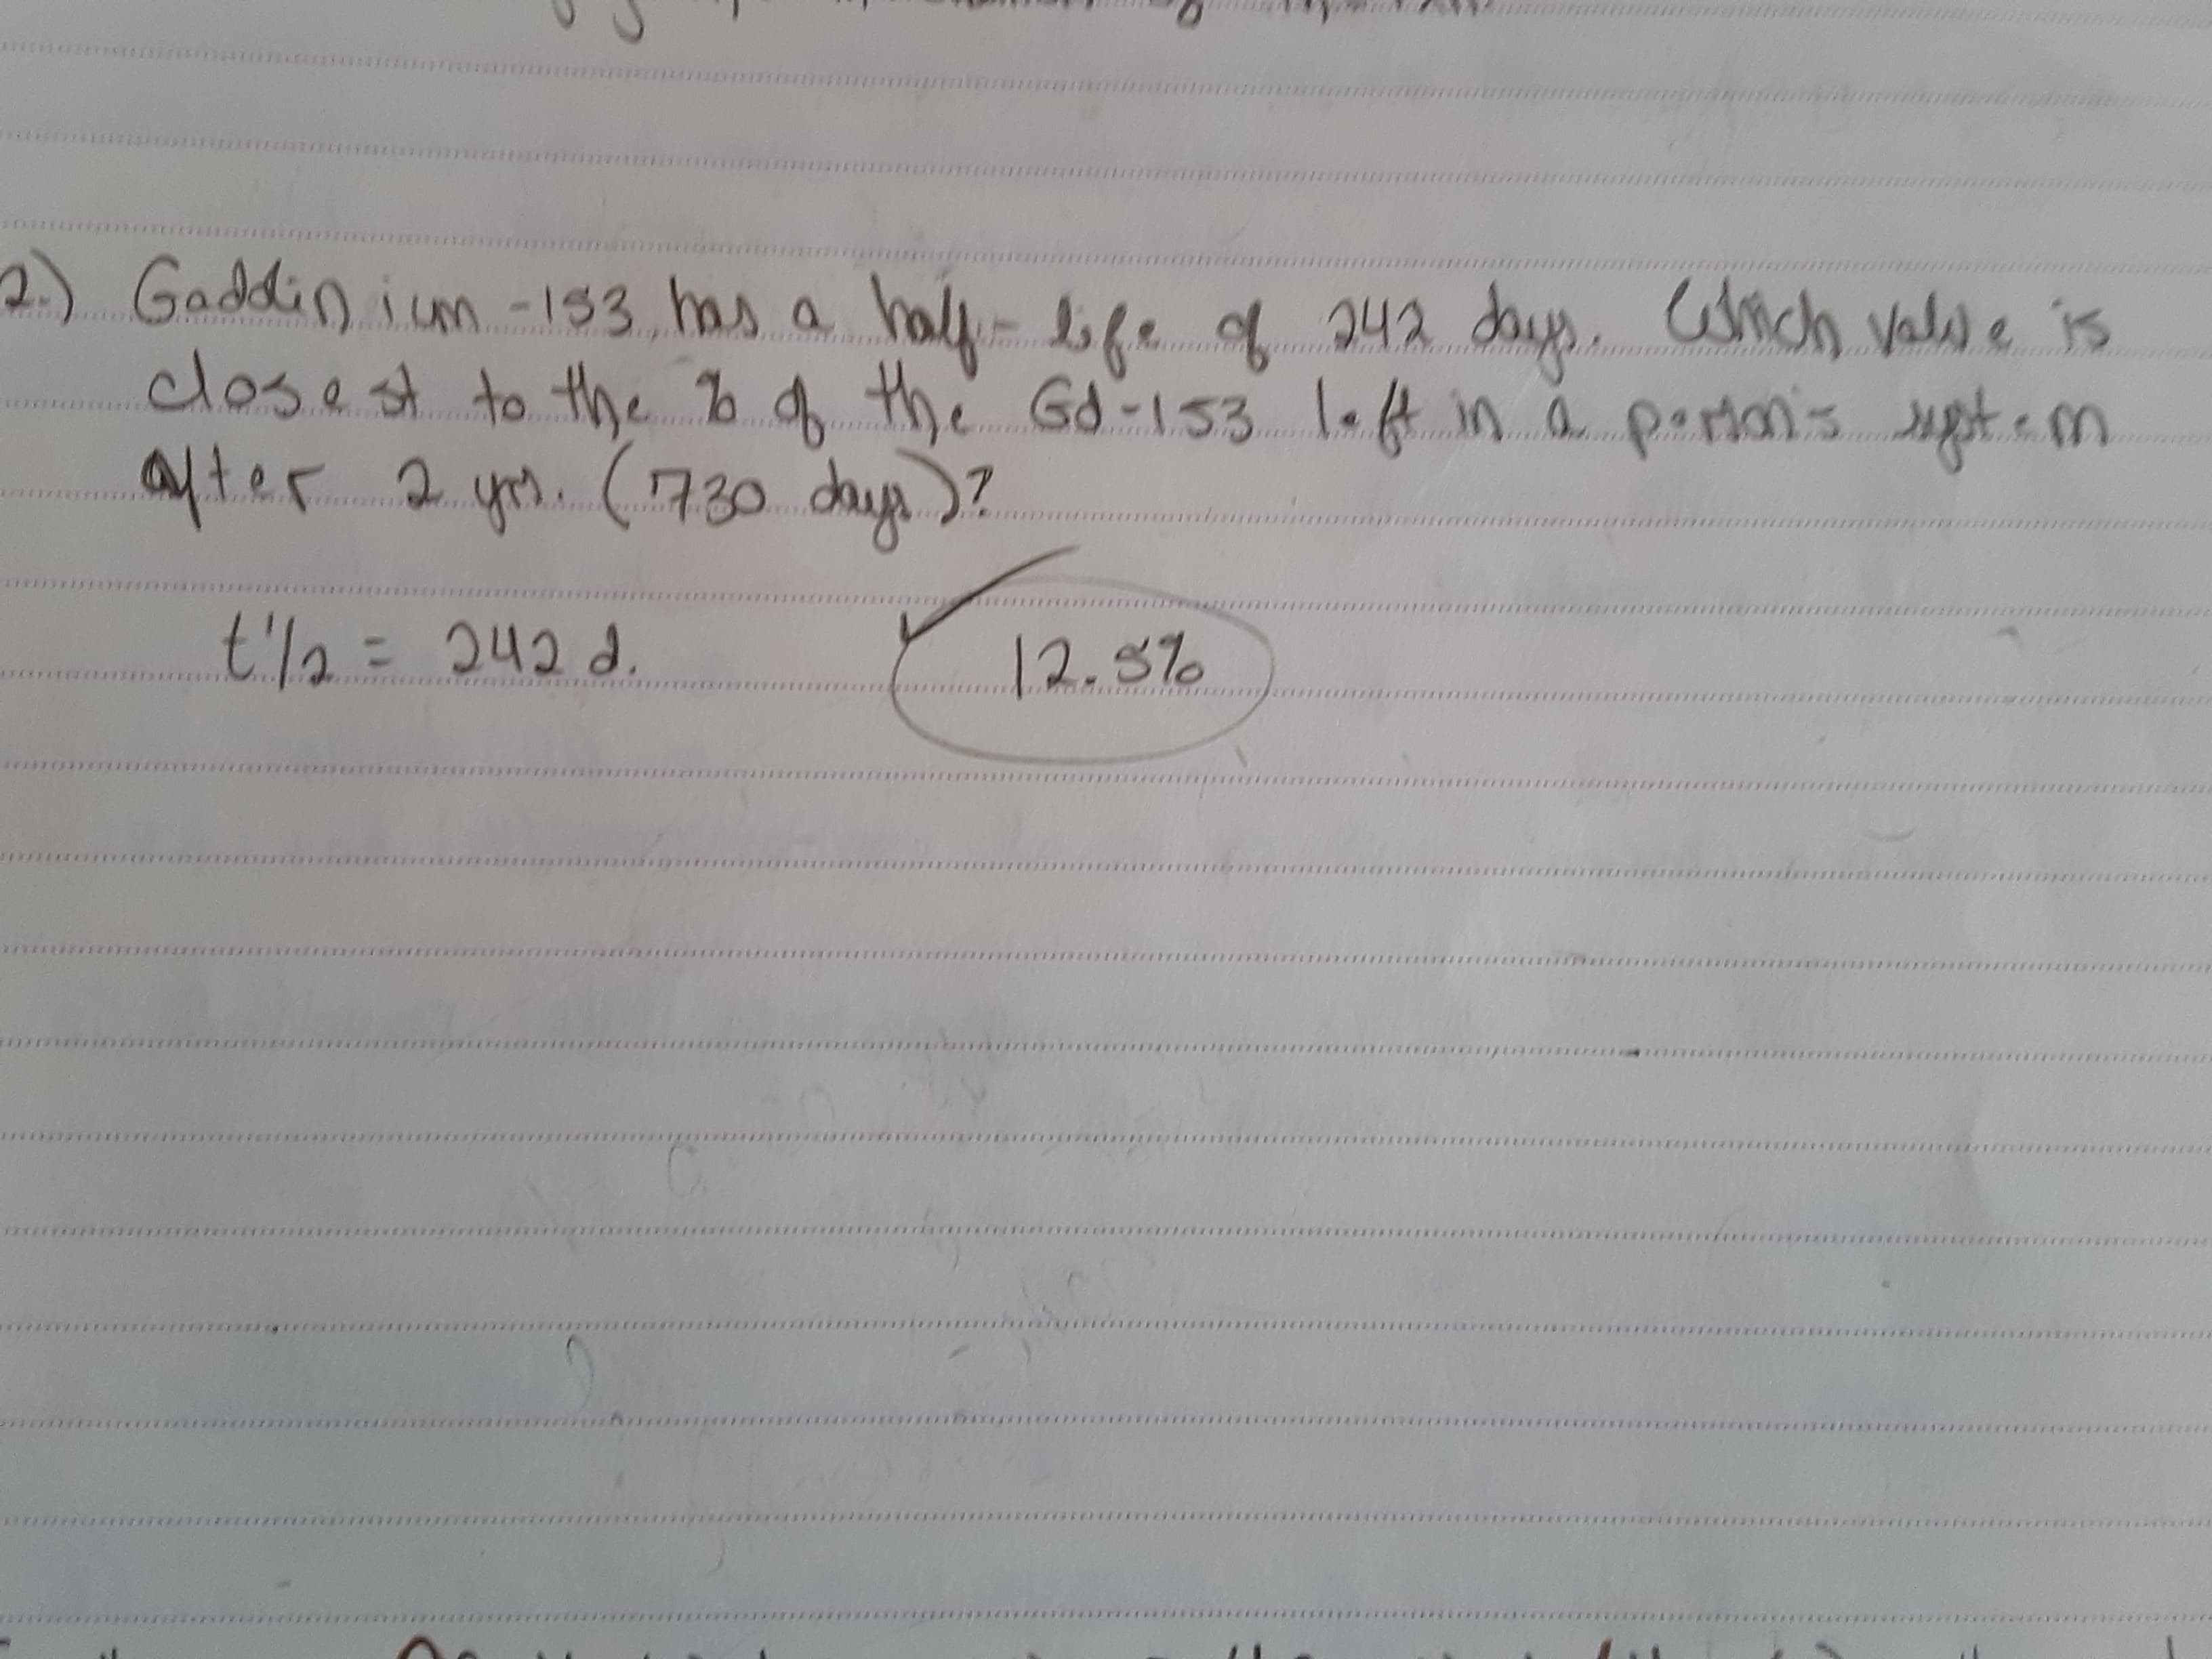 2.) Gaddinium-153 has a half-life of 242 days. Which value is
closest to the % of the Gd-153 left in a person's system
after 2 yrs. (730 days)?
t 1/2 = 242 d. 12.5%